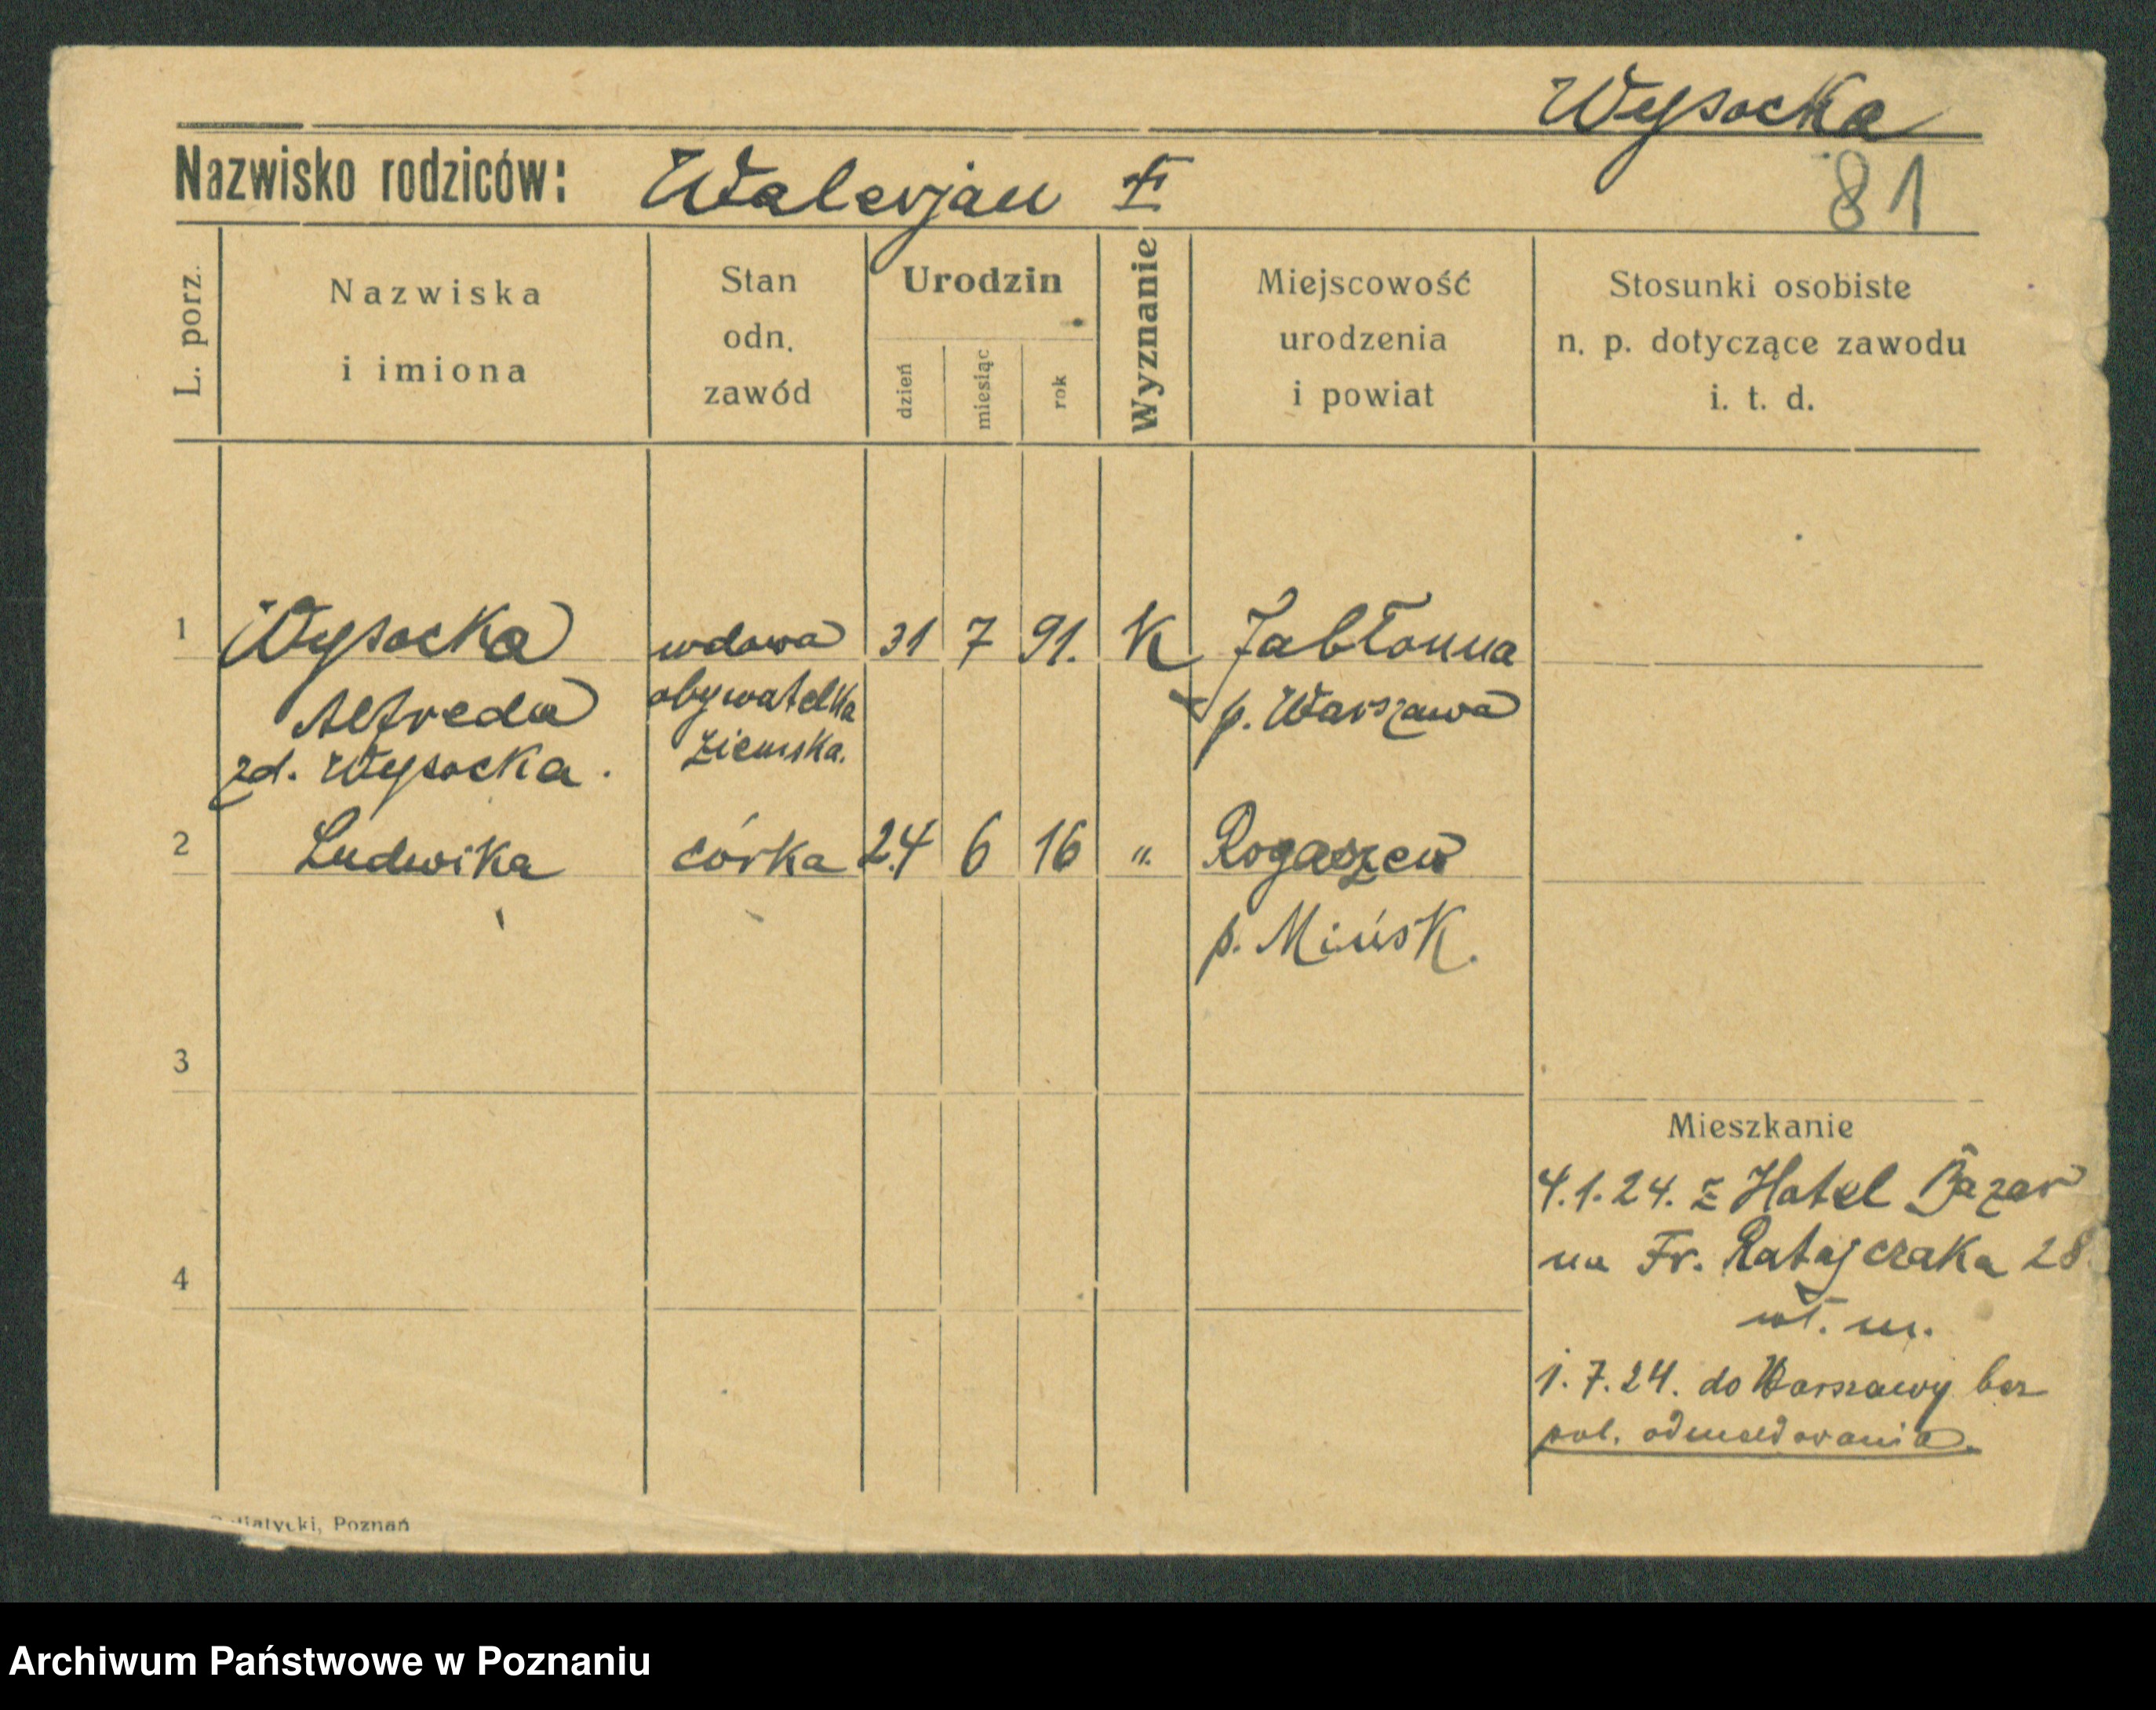 Wysocka
Nazwisko rodziców: Walerjan †
81
L. porz.
Nazwiska
i imiona
Stan
odn.
zawód
Urodzin
dzień
miesiąc
rok
Wyznanie
Miejscowość
urodzenia
i powiat
Stosunki osobiste
n. p. dotyczące zawodu
i. t. d.
1 Wysocka wdowa 31 7 91. K Jabłonna
Alfreda obywatelka p. Warszawa
zd. Wysocka. ziemska.
2 Ludwika córka 24 6 16 " Rogaszew
p. Mińsk.
3
Mieszkanie
4.1.24. z Hotel Bazar
na Fr. Ratajczaka 28.
4
wł. m.
1.7.24. do Warszawy bez
pol. odmeldowania.
Poznań
Archiwum Państwowe w Poznaniu